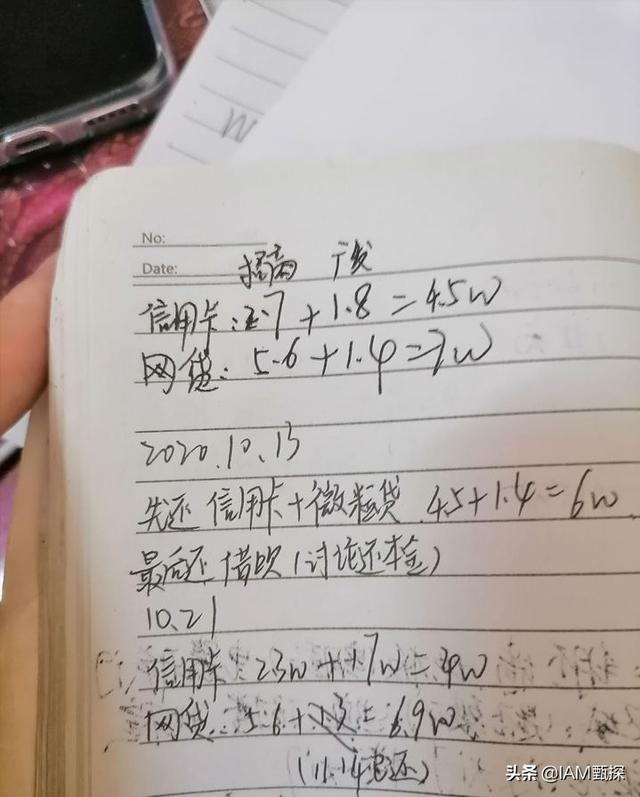 No:
Date:
信用卡:2.7+1.8=4.5w
网贷:5.6+1.4=7w
2020.10.13
先还信用卡+微粒贷 4.5+1.4=6w
最后还借呗(讨论还本金)
10.21
信用卡 2.3w+1.7w=4w
网贷:5.6+1.3=6.9w
(11.14
头条 @IAM甄探